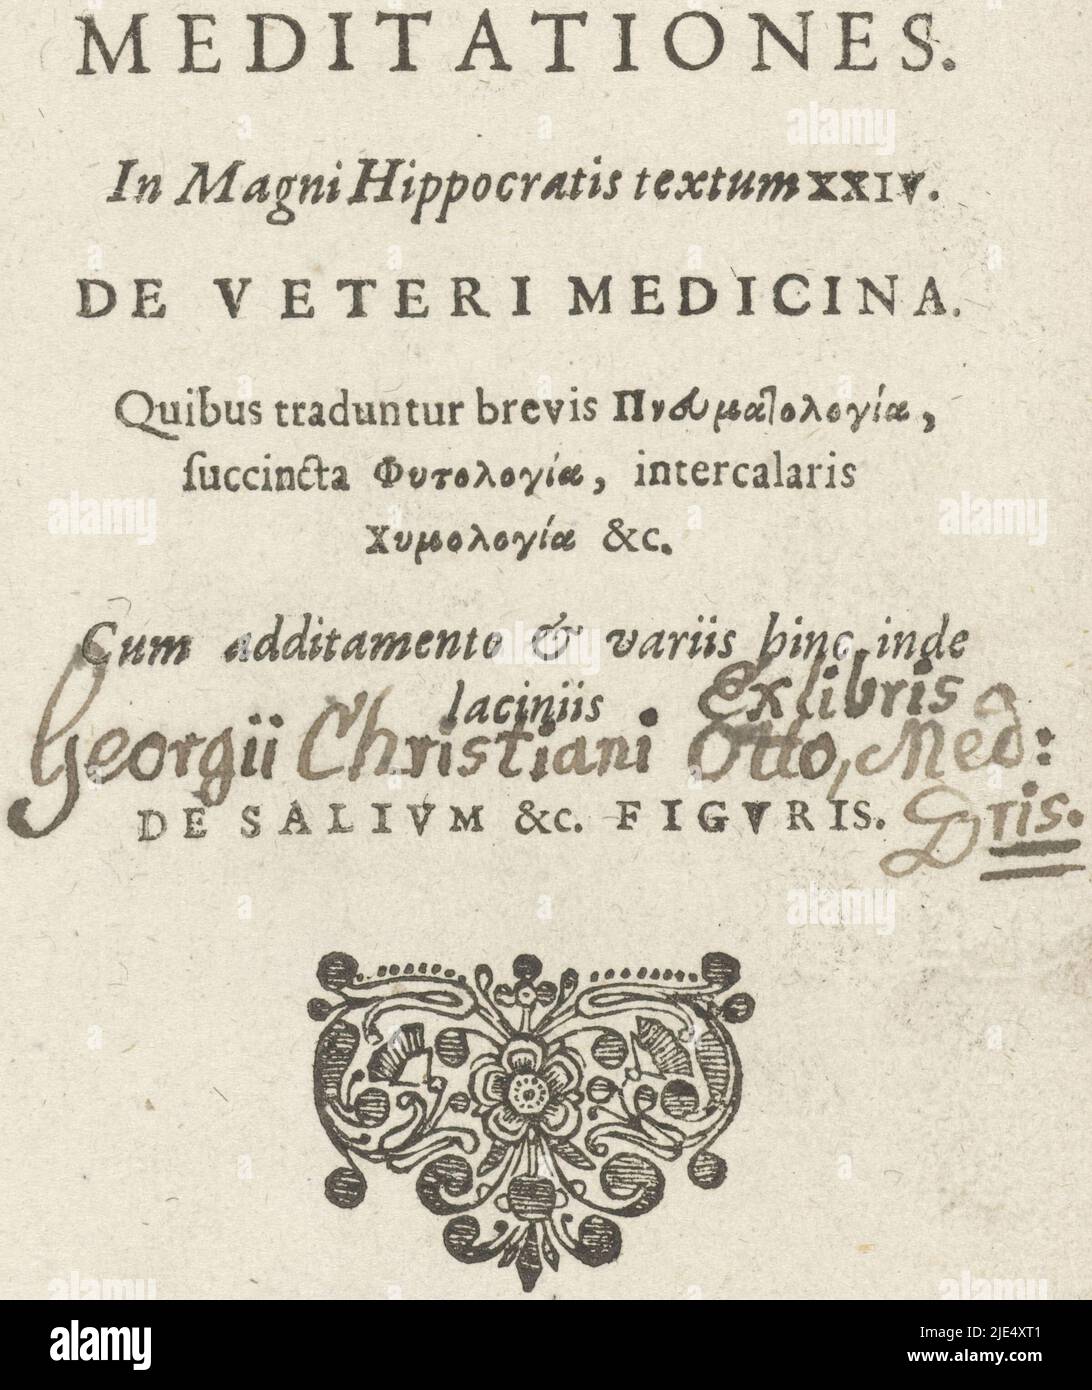 MEDITATIONES.
In Magni Hippocratis textum XXIV.
DE VETERI MEDICINA.
Quibus traduntur brevis Πνευματολογία,
ſuccincta Φυτολογία, intercalaris
Χυμολογία &c.
Cum additamento & variis hinc inde
laciniis
Exlibris
Georgii Christiani Otto, Med:
DE SALIVM &c. FIGVRIS.
Dris.
alamy
Image ID: 2JE4XT1
www.alamy.com